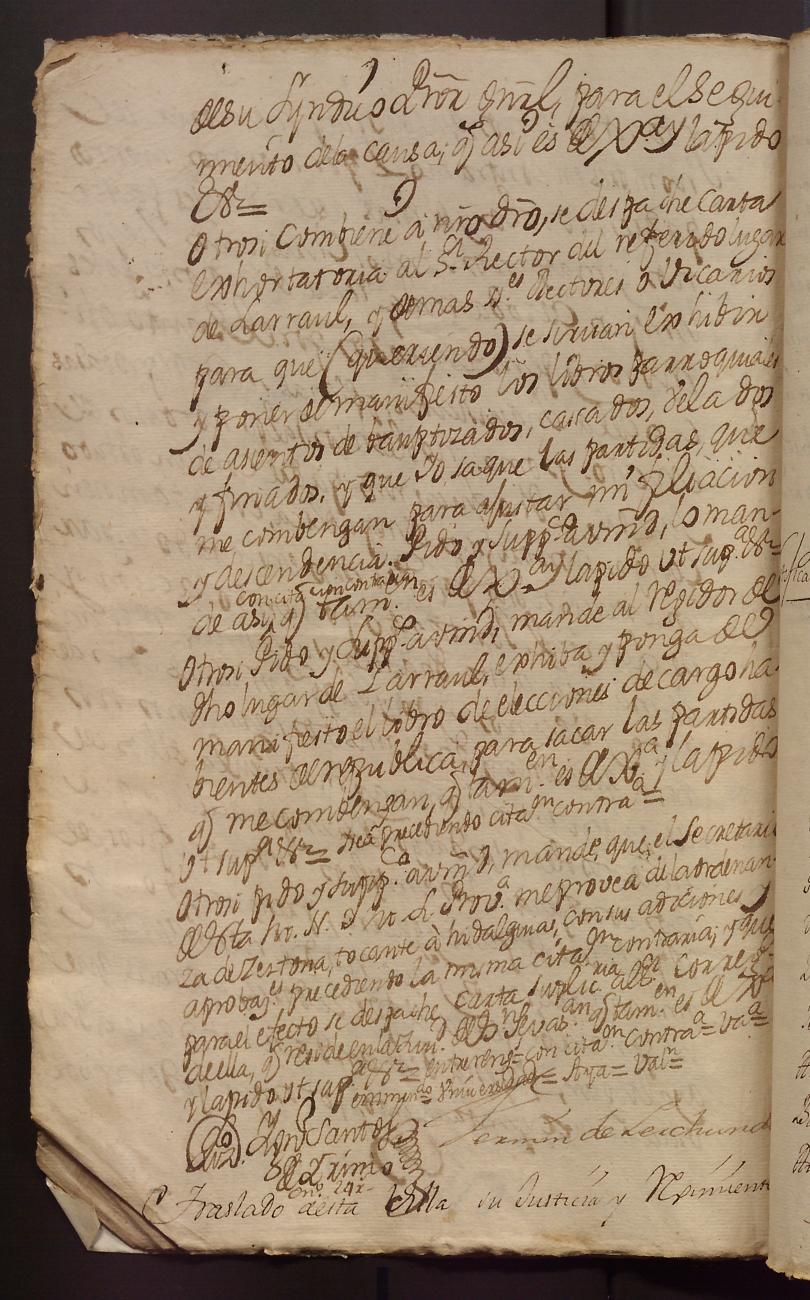 desu Syndico Pror. gnrl, para el Segui-
miento dela causa, q̃ asi es de Xa. y la pido
&a=
Otrosi Combiene à mro dro, se despache Carta
exhortatoria al Sr. Rector del referido lugar
de Larraul, y demas ss.es Rectores ò Vicarios
para que (queriendo) se siruan Exhibir
y poner de manifiesto los libros parroquiales
de asientos de bauptizados, casados, belados
y finados, y que Yo saque las partidas, que
me combengan para ajustar mi filiacion
y descendencia. Pido y Suppco. a vmd, lo man-
con citacion contraria
de asi, q̃ tam.en es de Xa. y la pido Vt sup.a &a=
Otrosi Pido y Suppco. a vmd, mande al regidor de
dho lugar de Larraul, exhiba y ponga de
manifiesto el libro de elecciones de cargoha-
bientes de republica, para sacar las partidas
q̃ me combengan, q̃ tam.en es de Xa. y la pido
Vt sup.a &a= precediendo cita.on contra.a=
Otrosi pido y suppco. a vmd, mande, que el Secretario
de esta M. N. y M. L. Prov.a me provea de la ordenan-
za de Zestona, tocante à hidalguias, con sus adiciones y
aprobaz.es precediendo la misma cita.on contraria; y que
para el efecto se despache carta suplicat.ria al Sr. Correg.or
de ella, q̃ reside en la Ciu.d de Sn. Sevas.an q̃ tam.en es de Xa.
y la pido Vt sup.a &a= entrereng.s= con cita.on contra.a= Va.a=
enmen.do Universidad= Va= Val.n
Ldo. Dn. Santos
Fermin de Leichund
Traslado desta Villa su Justicia y Reximiento